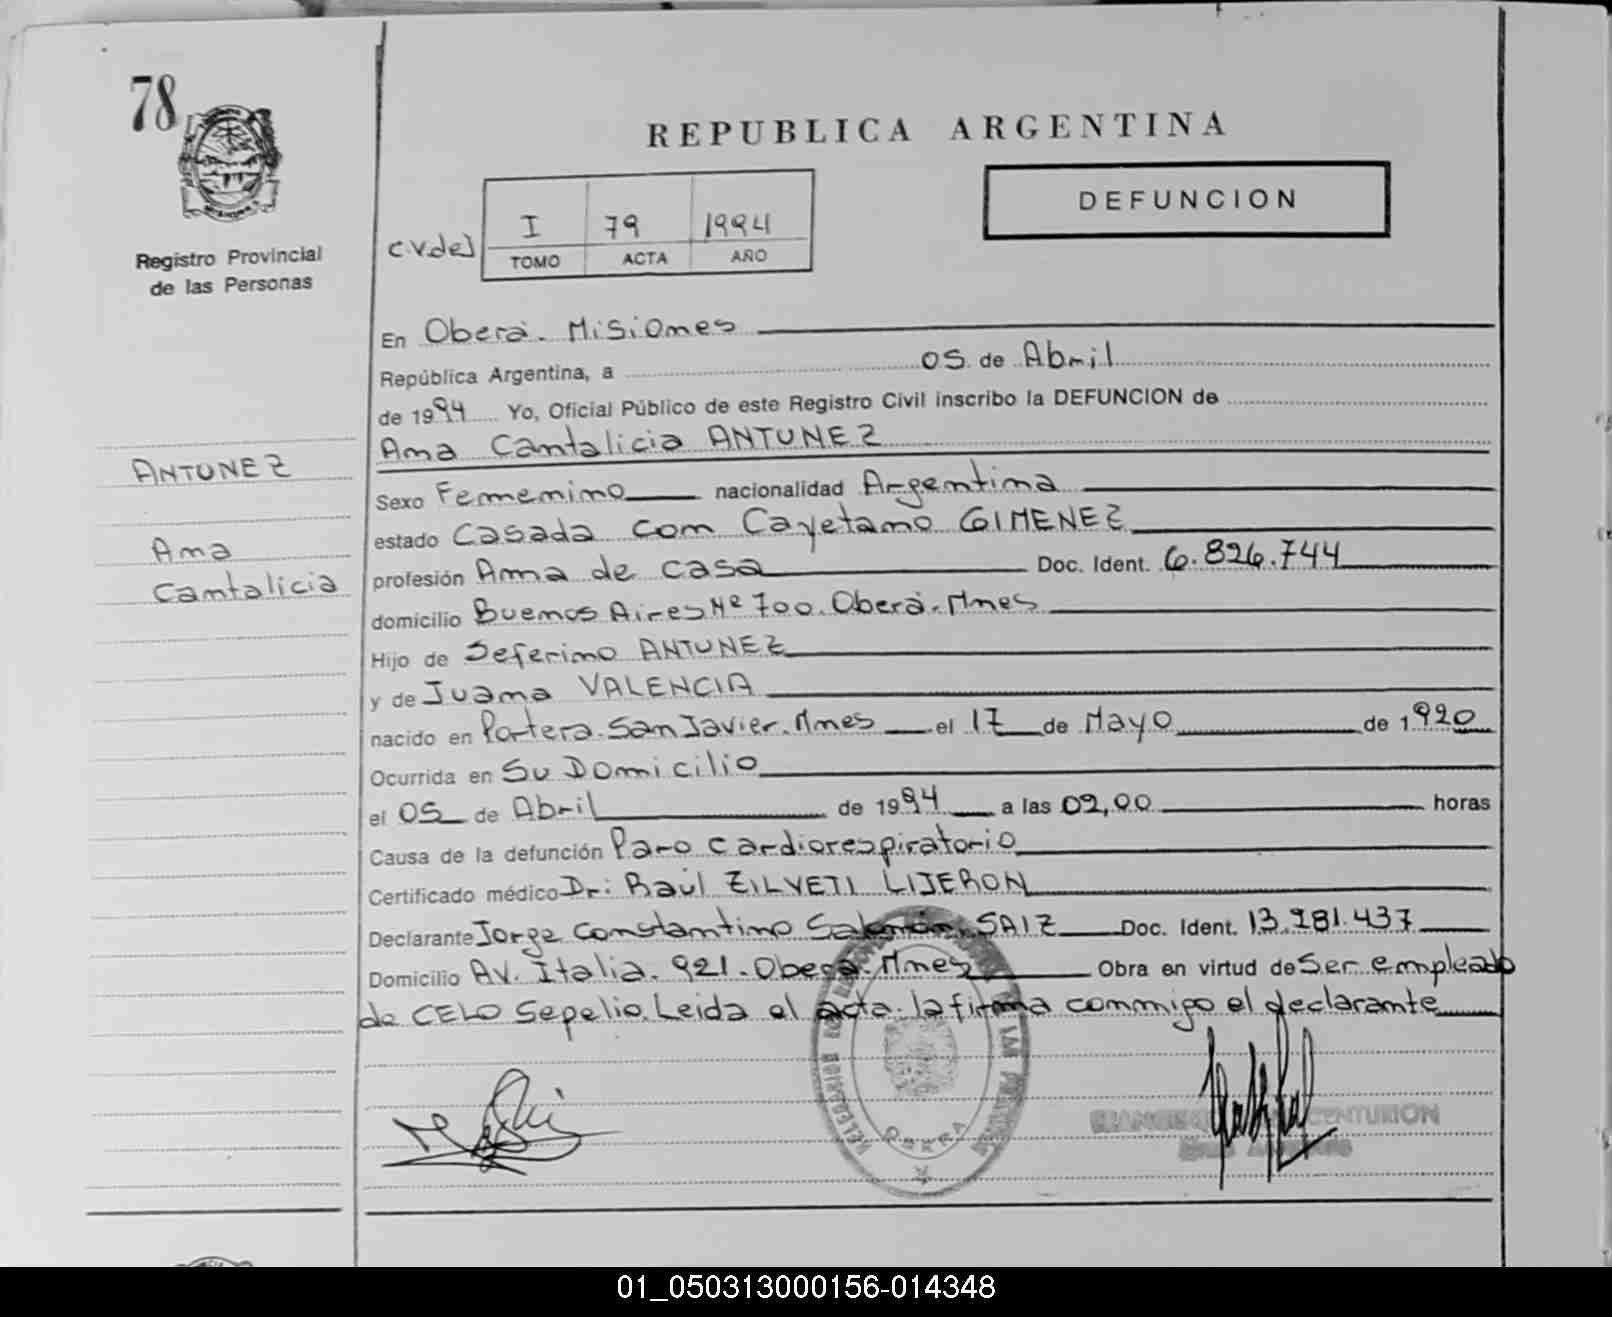 78
REPUBLICA ARGENTINA
DEFUNCION
Registro Provincial
de las Personas
I 79 1994
TOMO ACTA AÑO
En Oberá. Misiones
República Argentina, a 05 de Abril
de 1994 Yo, Oficial Público de este Registro Civil inscribo la DEFUNCION de
Ana Cantalicia ANTUNEZ
ANTUNEZ
Ana
Cantalicia
Sexo Femenino nacionalidad Argentina
estado Casada con Cayetano GIMENEZ
profesión Ama de casa Doc. Ident. 6.826.744
domicilio Buenos Aires Nº 700. Oberá. Mnes
Hijo de Seferino ANTUNEZ
y de Juana VALENCIA
nacido en Portera. San Javier. Mnes el 17 de Mayo de 1920
Ocurrida en Su Domicilio
el 05 de Abril de 1994 a las 02,00 horas
Causa de la defunción Paro cardiorespiratorio
Certificado médico Dr: Raúl ZILVETI LIJERON
Declarante Jorge Constantino SAIZ Doc. Ident. 13.281.437
Domicilio Av. Italia. 921. Oberá. Mnes Obra en virtud de Ser empleado
de CELO Sepelio. Leida el acta. la firma conmigo el declarante
OBERA
CENTURION
01_050313000156-014348